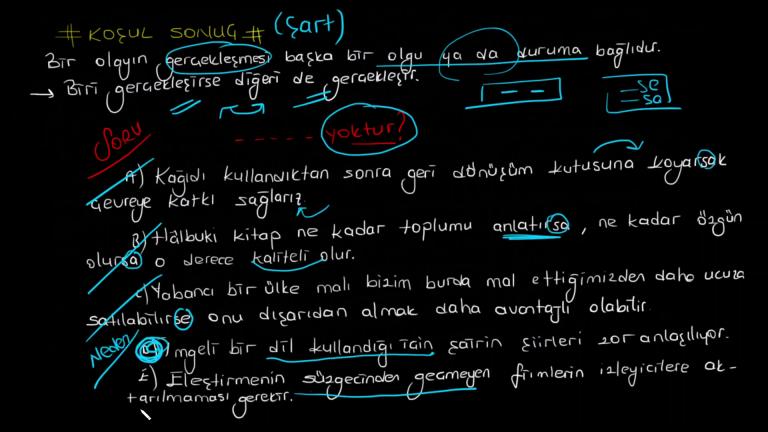 # KOŞUL SONUÇ # (Şart)
Bir olgyın gerçekleşmesi başka bir olgu ya da duruma bağlıdır.
→ Biri gerçekleşirse diğeri de gerçekleşir.
-se
-sa
Soru
----- yoktur?
A) Kağıdı kullandıktan sonra geri dönüşüm kutusuna koyarsak
çevreye katkı sağlarız.
B) Hâlbuki kitap ne kadar toplumu anlatırsa, ne kadar özgün
olursa o derece kaliteli olur.
C) Yabancı bir ülke malı bizim burda mal ettiğimizden daha ucuza
satılabilirse onu dışarıdan almak daha avantajlı olabilir.
Neden
D) İmgeli bir dil kullandığı için şairin şiirleri zor anlaşılıyor.
E) Eleştirmenin süzgecinden geçmeyen filmlerin izleyicilere ak-
tarılmaması gerekir.